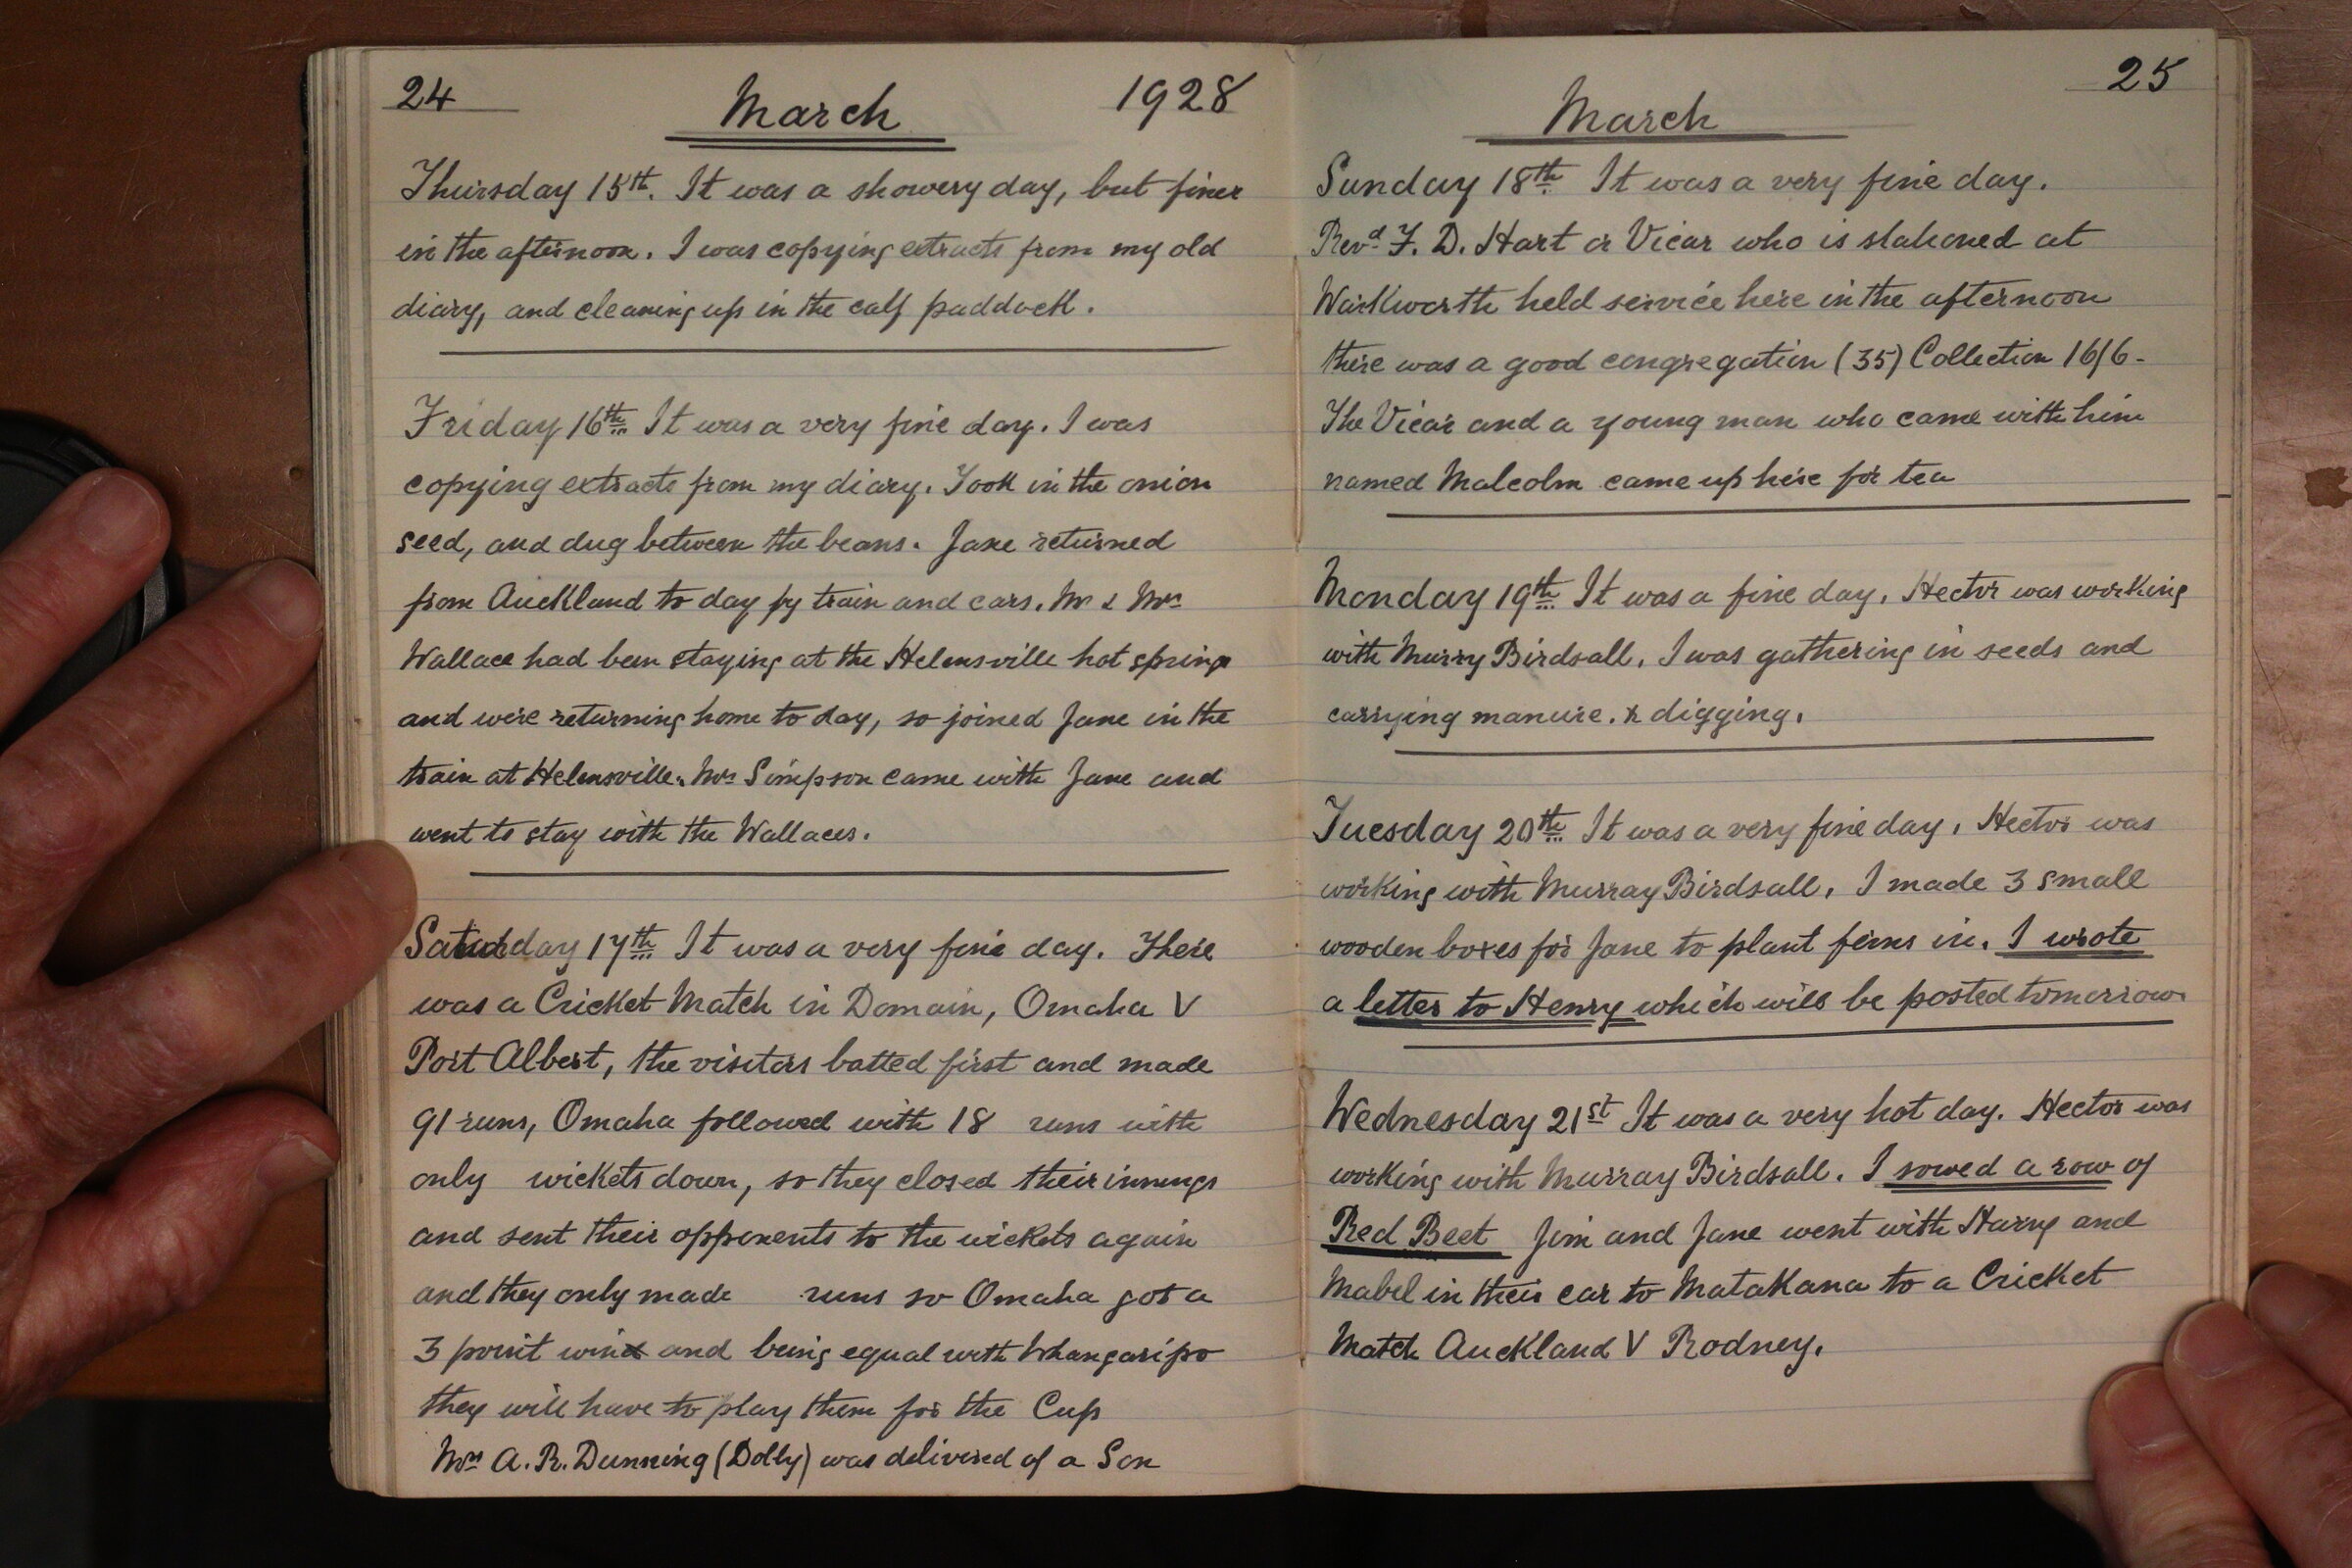 24 March 1928
Thursday 15th. It was a showery day, but finer
in the afternoon. I was copying extracts from my old
diary, and cleaning up in the calf paddock.
Friday 16th It was a very fine day. I was
copying extracts from my diary. Took in the onion
seed, and dug between the beans. Jane returned
from Auckland to day by train and cars. Mr & Mrs
Wallace had been staying at the Helensville hot springs
and were returning home to day, so joined Jane in the
train at Helensville. Mrs Simpson came with Jane and
went to stay with the Wallaces.
Saturday 17th It was a very fine day. There
was a Cricket Match in Domain, Omaha V
Port Albert, the visitors batted first and made
91 runs, Omaha followed with 18 runs with
only wickets down, so they closed their innings
and sent their opponents to the wickets again
and they only made runs so Omaha got a
3 point win and being equal with Whangaripo
they will have to play them for the Cup
Mrs A. R. Dunning (Dolly) was delivered of a Son
25
March
Sunday 18th It was a very fine day.
Revd F. D. Hart or Vicar who is stationed at
Warkworth held service here in the afternoon
there was a good congregation (35) Collection 16/6-
The Vicar and a young man who came with him
named Malcolm came up here for tea
Monday 19th It was a fine day. Hector was working
with Murry Birdsall. I was gathering in seeds and
carrying manure. & digging.
Tuesday 20th It was a very fine day. Hector was
working with Murray Birdsall. I made 3 small
wooden boxes for Jane to plant ferns in. I wrote
a letter to Henry which will be posted tomorrow
Wednesday 21st It was a very hot day. Hector was
working with Murray Birdsall. I sowed a row of
Red Beet Jim and Jane went with Harry and
Mabel in their car to Matakana to a Cricket
Match Auckland V Rodney.